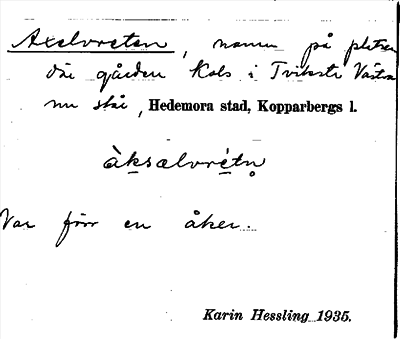 Axelvreten, namn på platsen
där gården Kols i Tviksta Västra
nu står, Hedemora stad, Kopparbergs l.
àksælvrétn̥
Var förr en åker.
Karin Hessling 1935.